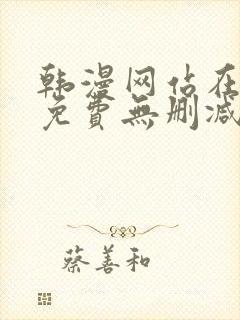 韩漫网站在
免費無删减
蔡善和